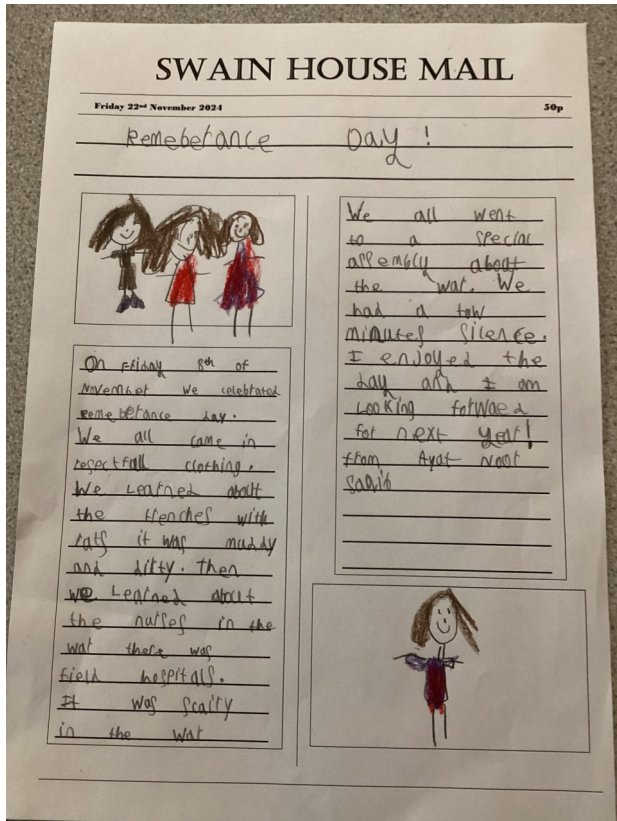 SWAIN HOUSE MAIL
Friday 22nd November 2024 50p
Remeberance Day!
On Friday 8th of
November we celebrated
remeberance day.
We all came in
respectfall clothing.
We Learned about
the trenches with
rats it was muddy
and dirty. Then
we Learned about
the nurses in the
war there was
field hospitals.
It was scairy
in the war
We all went
to a special
assembly about
the war. We
had a tow
minutes silence.
I enjoyed the
day and I am
Looking forwaed
for next year!
from Ayat Noor
Saqib